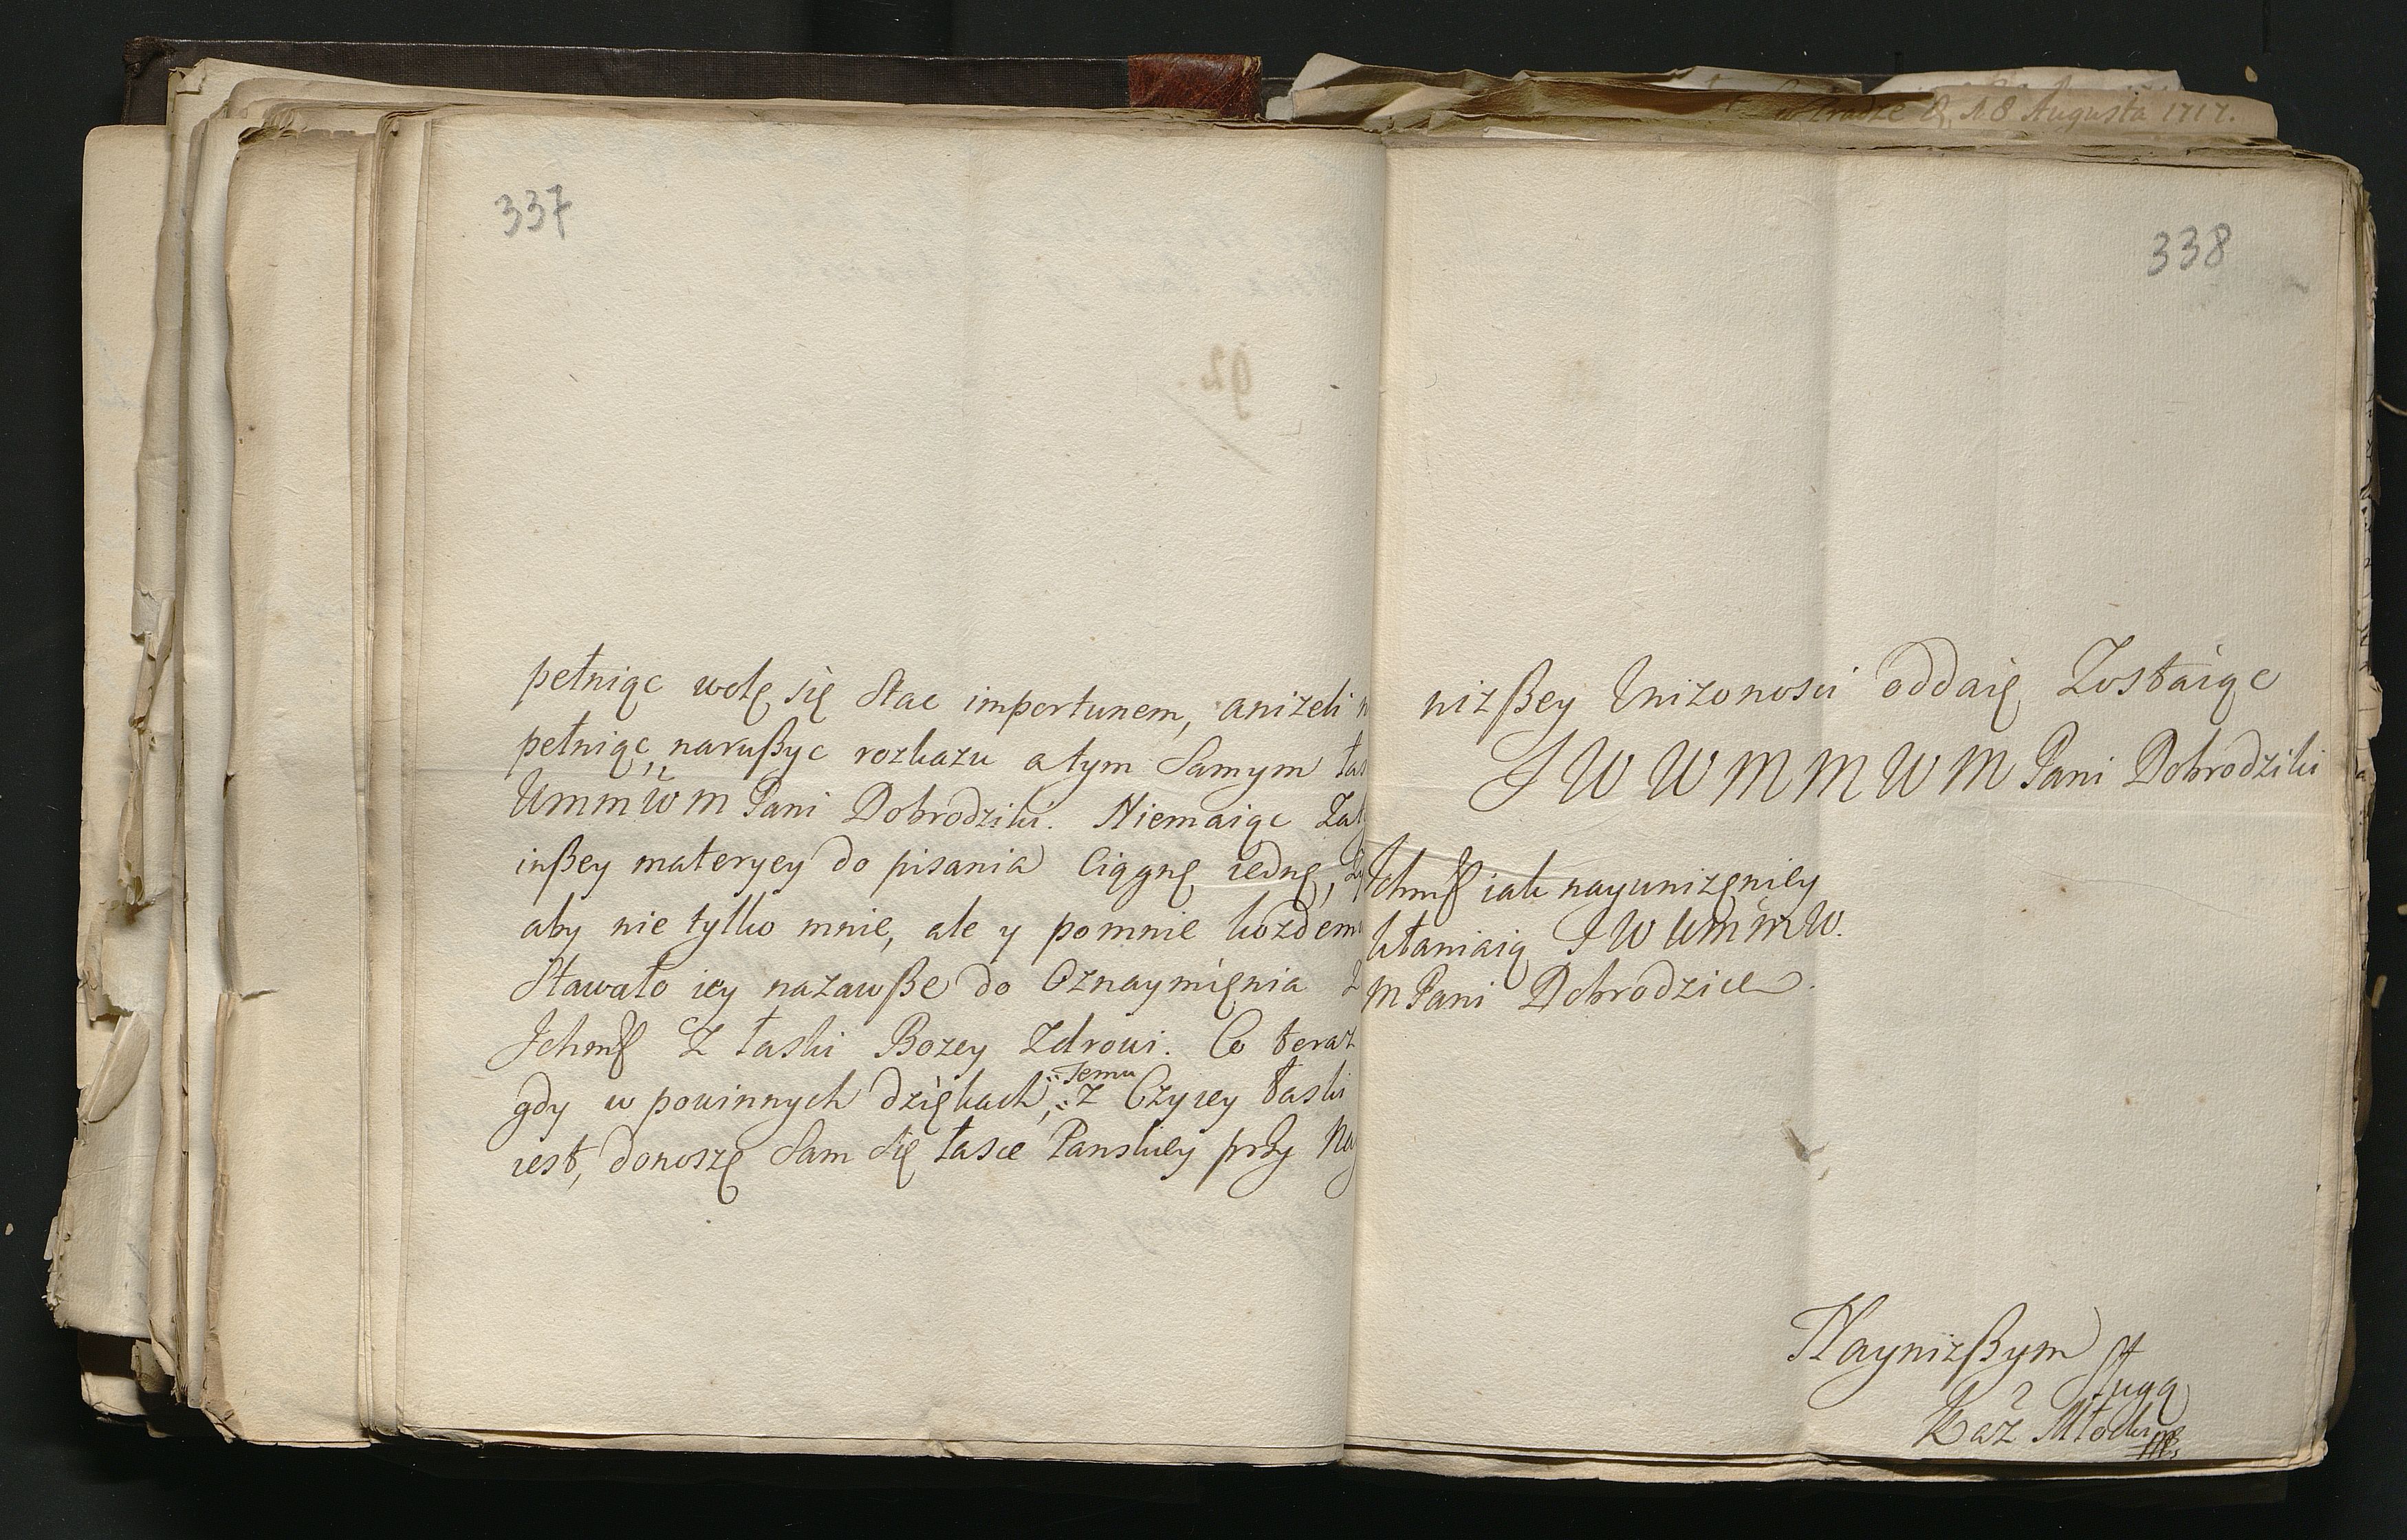 w Pradze D. 18 Augusta 1717.
337
pełniąc wolę się Stac importunem, anizeli
pełniąc, narußyc rozkazu a tym Samym
Ummwm Pani Dobrodziki. Niemaiąc
inßey materyey do pisania Ciągnę iednę,
aby nie tylko mnie, ale y pomnie kozdem
Stawało iey nazawße do Oznaymięnia
Jchmß Z łaski Bozey Zdrowi. Co teraz
gdy w powinnych dziękach, Temu Z Czyiey łaski
iest, donoszę Sam się łasce Panskiey przy
338
nizßey Unizonosci oddaię Zostaiąc
J W W M M W M Pani Dobrodziki
Jchmß iak nayunizęniey
kłaniaią J W UmmW.
M Pani Dobrodzice.
Naynizßym
Sługą
Kaz
92.